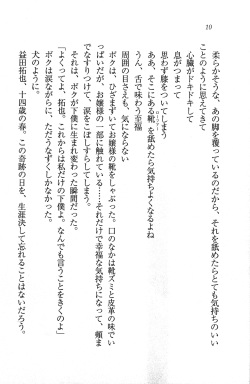 10
柔らかそうな、あの脚を覆っているのだから、それを舐めたらとても気持ちのいい
ことのように思えてきて
心臓がドキドキして
息がつまって
思わず膝をついてしまう
ああ、そこにある靴、を舐めたら気持ちよくなるよね
うう、舌で味わう至福
周囲の目さえも、気にならない
ボクは、ひざまずいてお嬢様の靴をしゃぶった。口のなかは靴ズミと皮革の味でい
っぱいだが、お嬢様の一部に触れている……それだけで幸福な気持ちになって、頬ま
でなすりつけて、涙をこぼしすらしてしまう。
それは、ボクが下僕に生まれ変わった瞬間だった。
「よくってよ、拓也。これからは私だけの下僕よ。なんでも言うことをきくのよ」
ボクは涙ながらに、ただうなずくしかなかった。
犬のように。
益田拓也、十四歳の春。この奇跡の日を、生涯決して忘れることはないだろう。